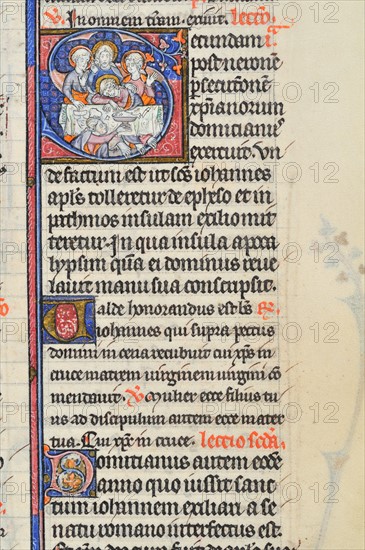 V. In omnem terram. exiuit. lectio i.
Secundam
post neronem
persecutionem
xpianorum
domitianus
exercuit. Vn
de factum est ut scs iohannes
apls tolleretur de epheso et in
pathmos insulam exilio mit
teretur. In qua insula apoca
lypsim quam ei dominus reue
lauit manu sua conscripsit.
Valde honorandus est bs R.
iohannes qui supra pectus
domini in cena recubuit cui xps in
cruce matrem uirginem uirgini com
mendauit. V. Mulier ecce filius tu
us ad discipulum autem ecce mater
tua. Cui xps in cruce. lectio scda.
Domitianus autem eodem
anno quo iussit sanc
tum iohannem exiliari a se
natu romano interfectus est.
PHOTO12